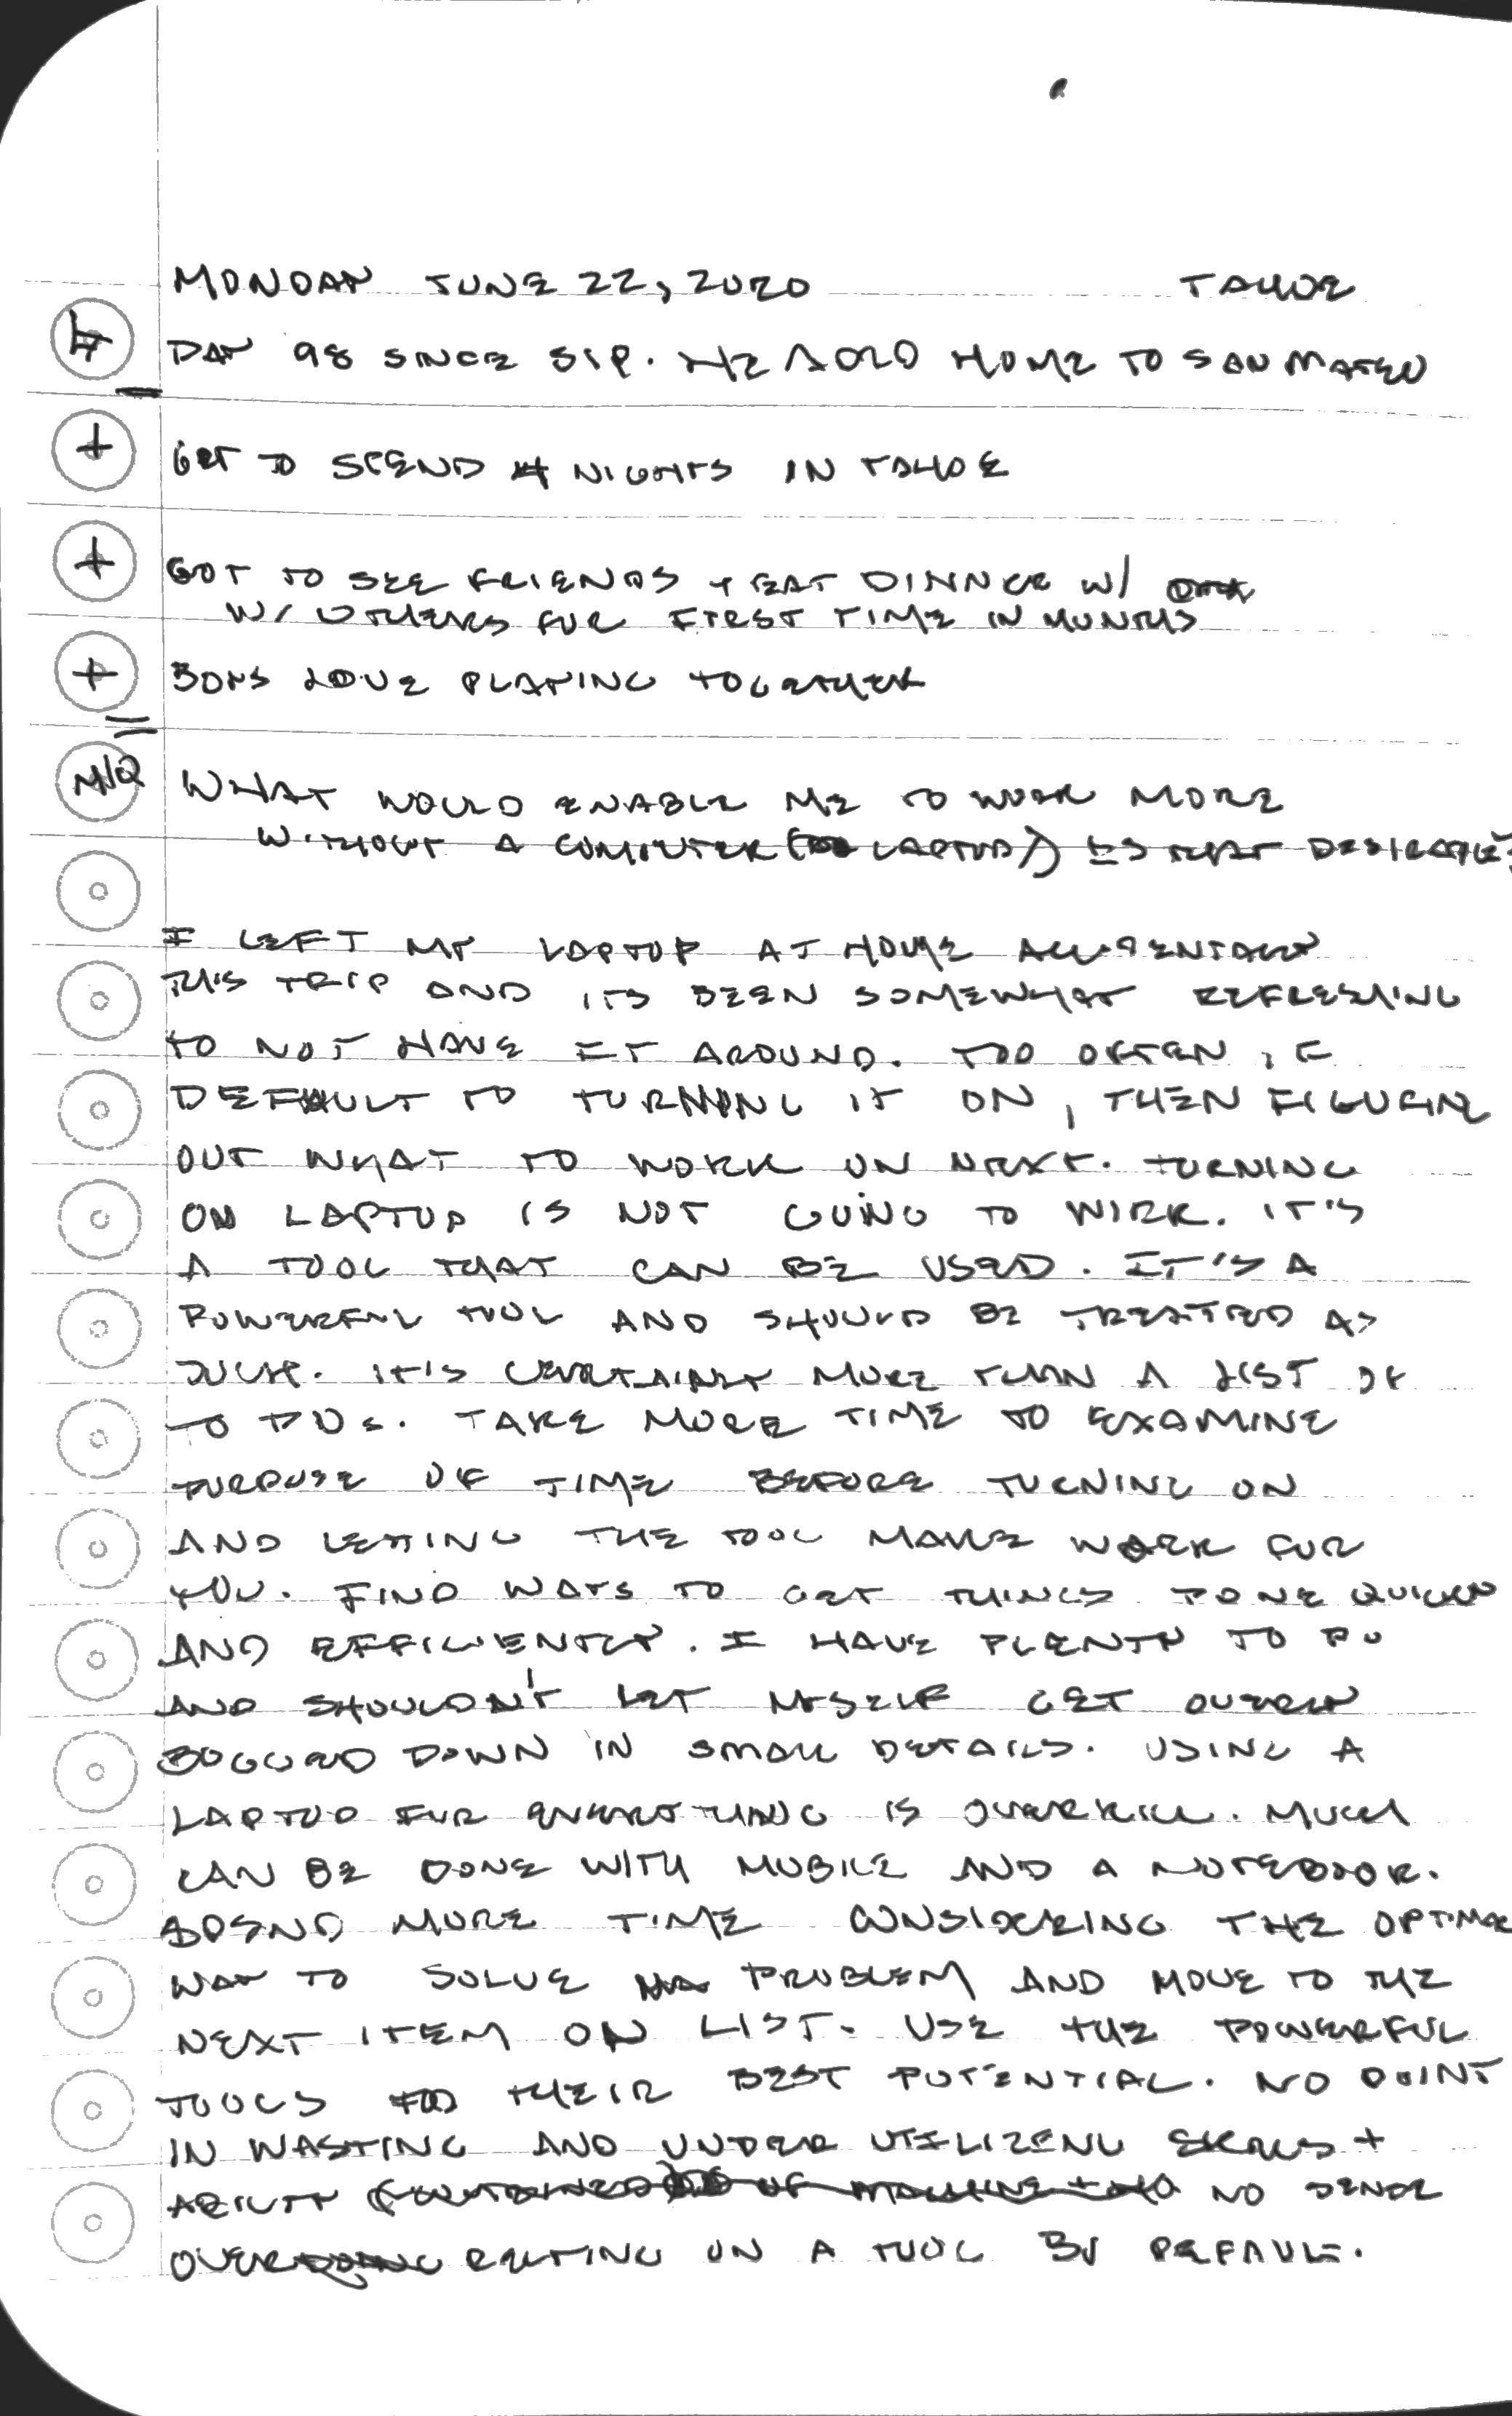 MONDAY JUNE 22, 2020 TAHOE
# DAY 98 SINCE SIP. HOME TO SAN MATEO
+ GET TO SPEND 4 NIGHTS IN TAHOE
+ GOT TO SEE FRIENDS + EAT DINNER W/
W/ OTHERS FOR FIRST TIME IN MONTHS
+ BOYS LOVE PLAYING TOGETHER
M/Q WHAT WOULD ENABLE ME TO WORK MORE
WITHOUT A COMPUTER (LAPTOP)? IS THAT DESIRABLE?
I LEFT MY LAPTOP AT HOME ACCIDENTALLY
THIS TRIP AND ITS BEEN SOMEWHAT REFRESHING
TO NOT HAVE IT AROUND. TOO OFTEN, I
DEFAULT TO TURNING IT ON, THEN FIGURING
OUT WHAT TO WORK ON NEXT. TURNING
ON LAPTOP IS NOT GOING TO WORK. IT'S
A TOOL THAT CAN BE USED. IT'S A
POWERFUL TOOL AND SHOULD BE TREATED AS
SUCH. IT'S CERTAINLY MORE THAN A LIST OF
TO DOS. TAKE MORE TIME TO EXAMINE
PURPOSE OF TIME BEFORE TURNING ON
AND LETTING THE TOOL MAKE WORK FOR
YOU. FIND WAYS TO GET THINGS DONE QUICKLY
AND EFFICIENTLY. I HAVE PLENTY TO DO
AND SHOULDN'T LET MYSELF GET OVERLY
BOGGED DOWN IN SMALL DETAILS. USING A
LAPTOP FOR EVERYTHING IS OVERKILL. MUCH
CAN BE DONE WITH MOBILE AND A NOTEBOOK.
SPEND MORE TIME CONSIDERING THE OPTIMAL
WAY TO SOLVE PROBLEM AND MOVE TO THE
NEXT ITEM ON LIST. USE THE POWERFUL
TOOLS TO THEIR BEST POTENTIAL. NO POINT
IN WASTING AND UNDER UTILIZING SKILLS +
ABILITY NO SENSE
OVER RELYING ON A TOOL BY DEFAULT.